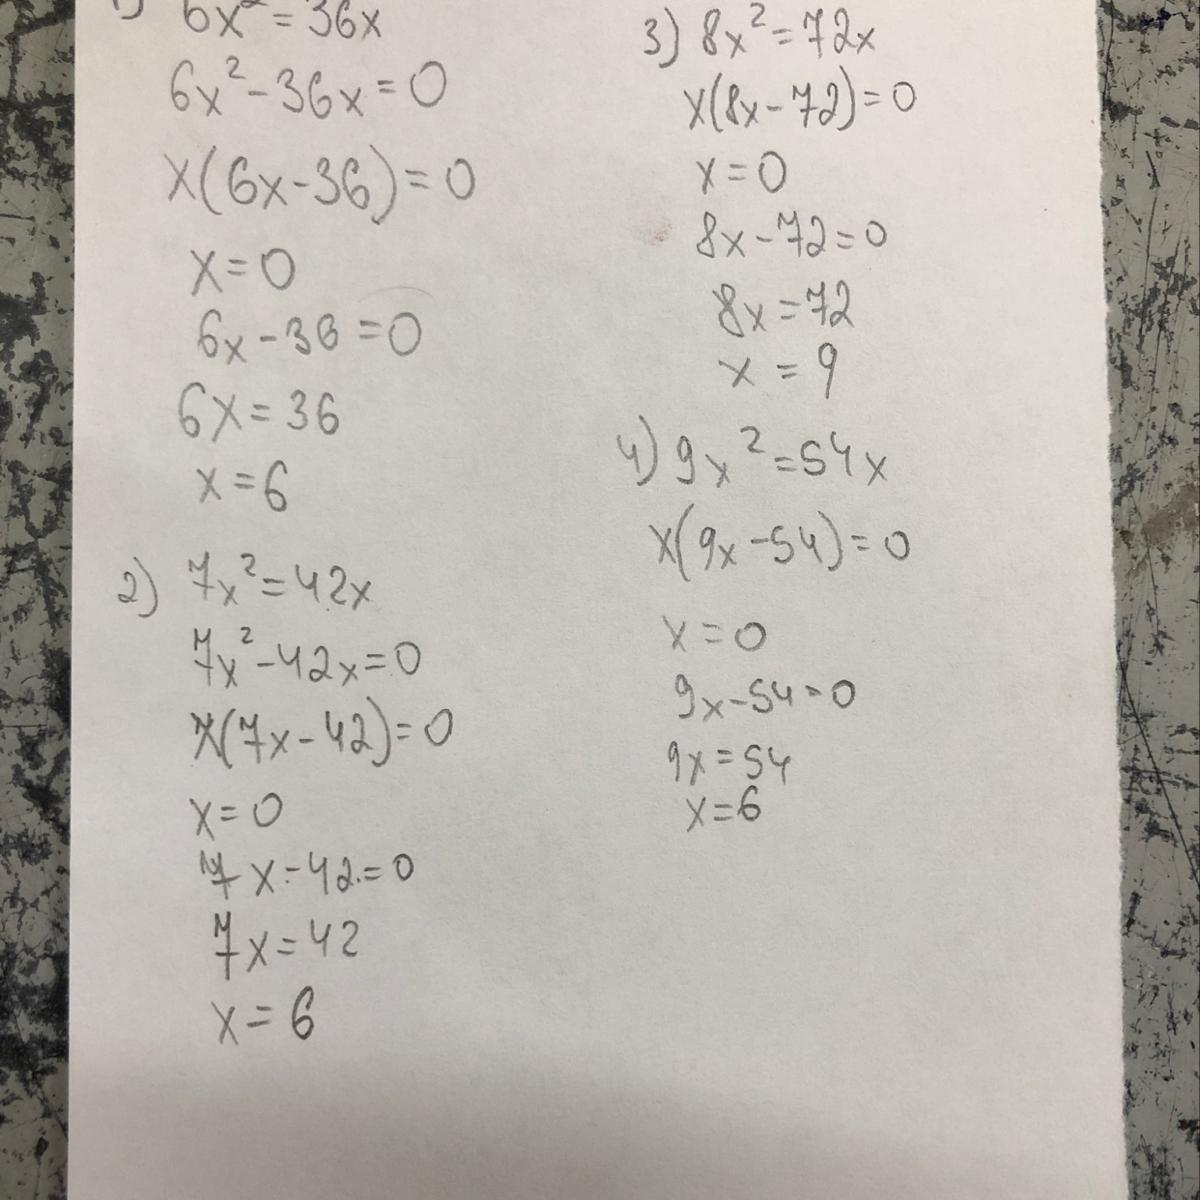 1) 6x² = 36x
6x² - 36x = 0
x(6x - 36) = 0
x = 0
6x - 36 = 0
6x = 36
x = 6
2) 7x² = 42x
7x² - 42x = 0
x(7x - 42) = 0
x = 0
7x - 42 = 0
7x = 42
x = 6
3) 8x² = 72x
x(8x - 72) = 0
x = 0
8x - 72 = 0
8x = 72
x = 9
4) 9x² = 54x
x(9x - 54) = 0
x = 0
9x - 54 = 0
9x = 54
x = 6